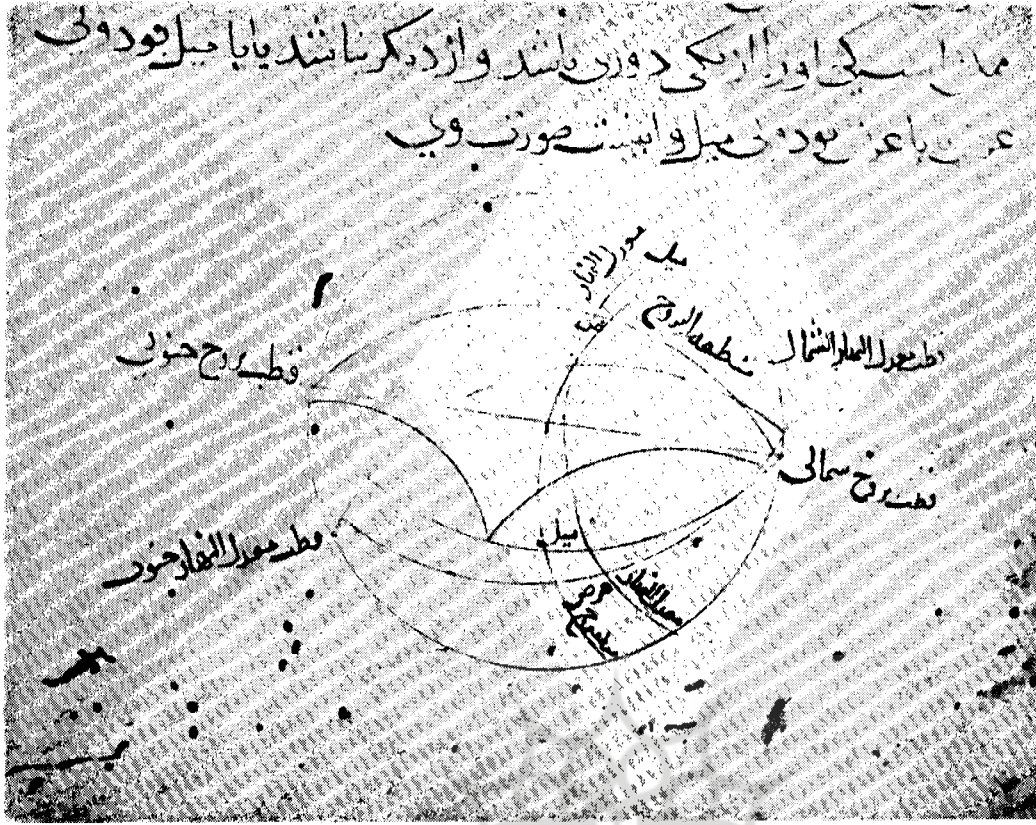 ممکن است کی اورا از یکی دوری باشد و از دیگر نباشد یا با میل بود و بی
عرض یا عرض بود و بی میل و اینست صورت وی
میل
معدل النهار
عرض
منطقه البروج
قطب معدل النهار الشمالی
قطب بروج جنوبی
قطب بروج شمالی
قطب معدل النهار جنوبی
میل
عرض
معدل النهار